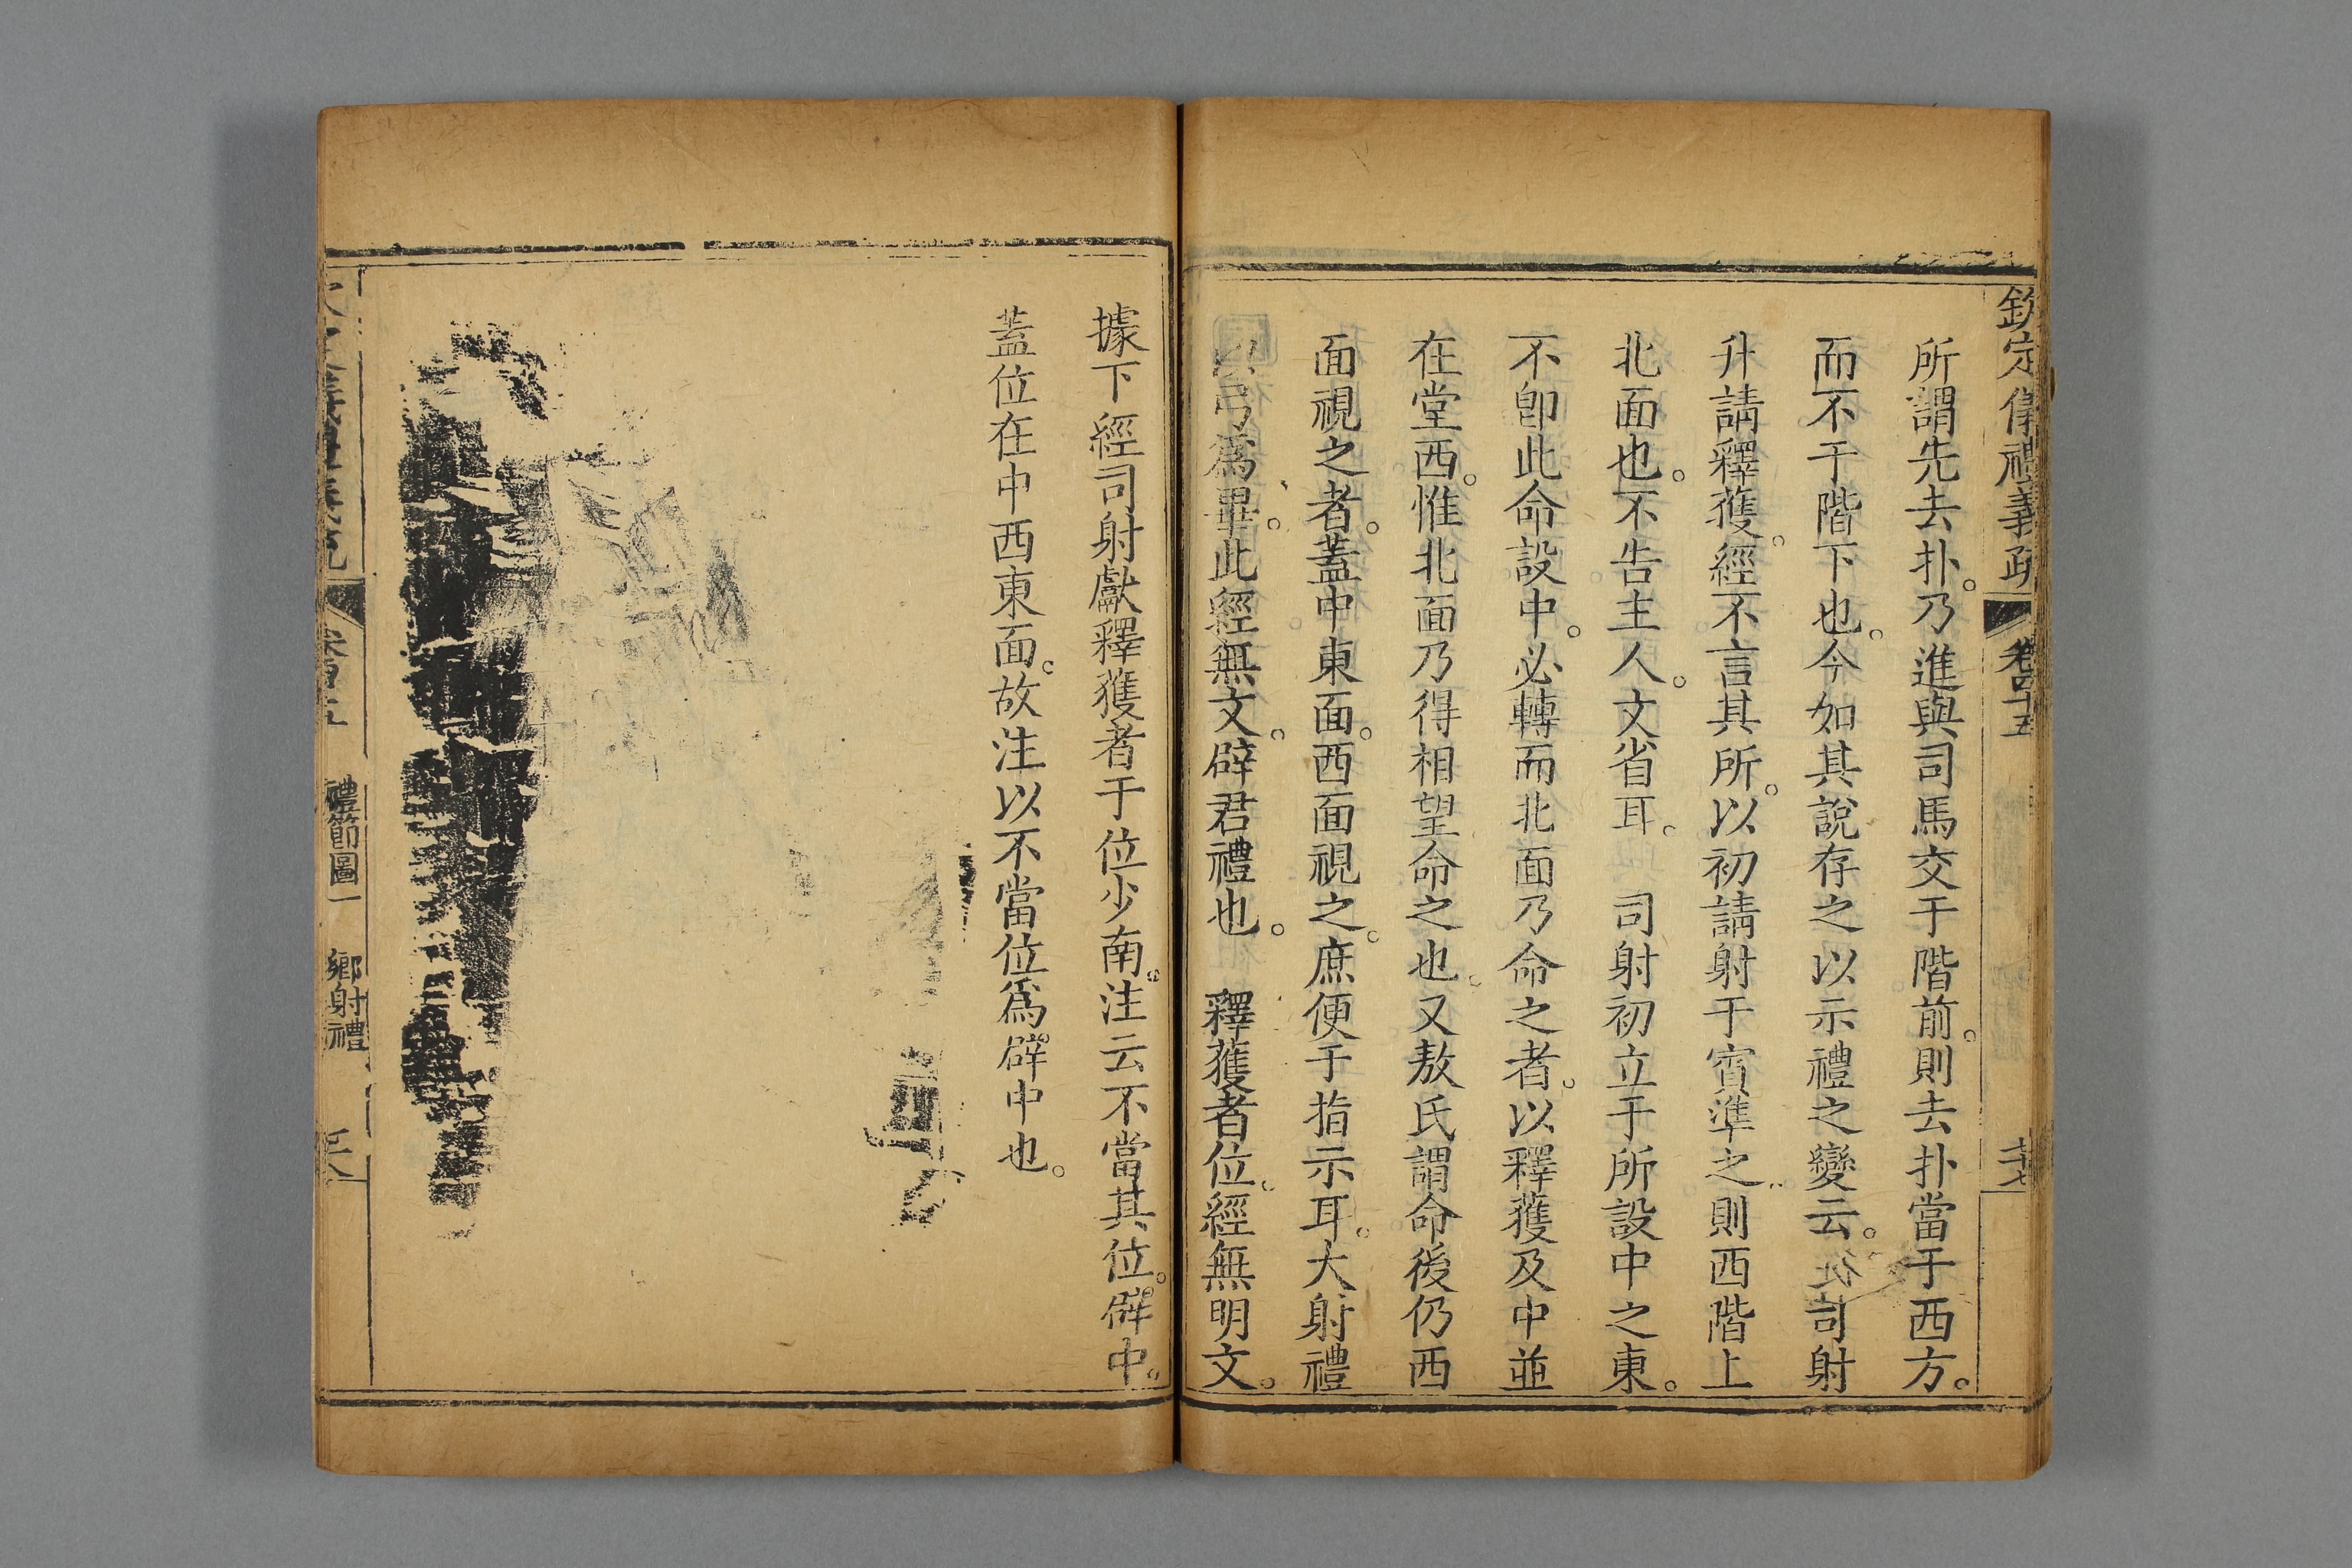 欽定儀禮義疏 卷四十五
所謂先去扑。乃進與司馬交于階前。則去扑當于西方。
而不于階下也。今如其說存之以示禮之變云。 司射
升請釋獲。經不言其所。以初請射于賓準之。則西階上
北面也。不告主人。文省耳。 司射初立于所設中之東。
不卽此命設中。必轉而北面乃命之者。以釋獲及中並
在堂西。惟北面乃得相望命之也。又敖氏謂命後仍西
面視之者。蓋中東面。西面視之。庶便于指示耳。大射禮
以弓爲畢。此經無文。辟君禮也。 釋獲者位。經無明文。
據下經司射獻釋獲者于位少南。注云不當其位。辟中。
蓋位在中西東面。故注以不當位爲辟中也。
禮節圖一 鄉射禮